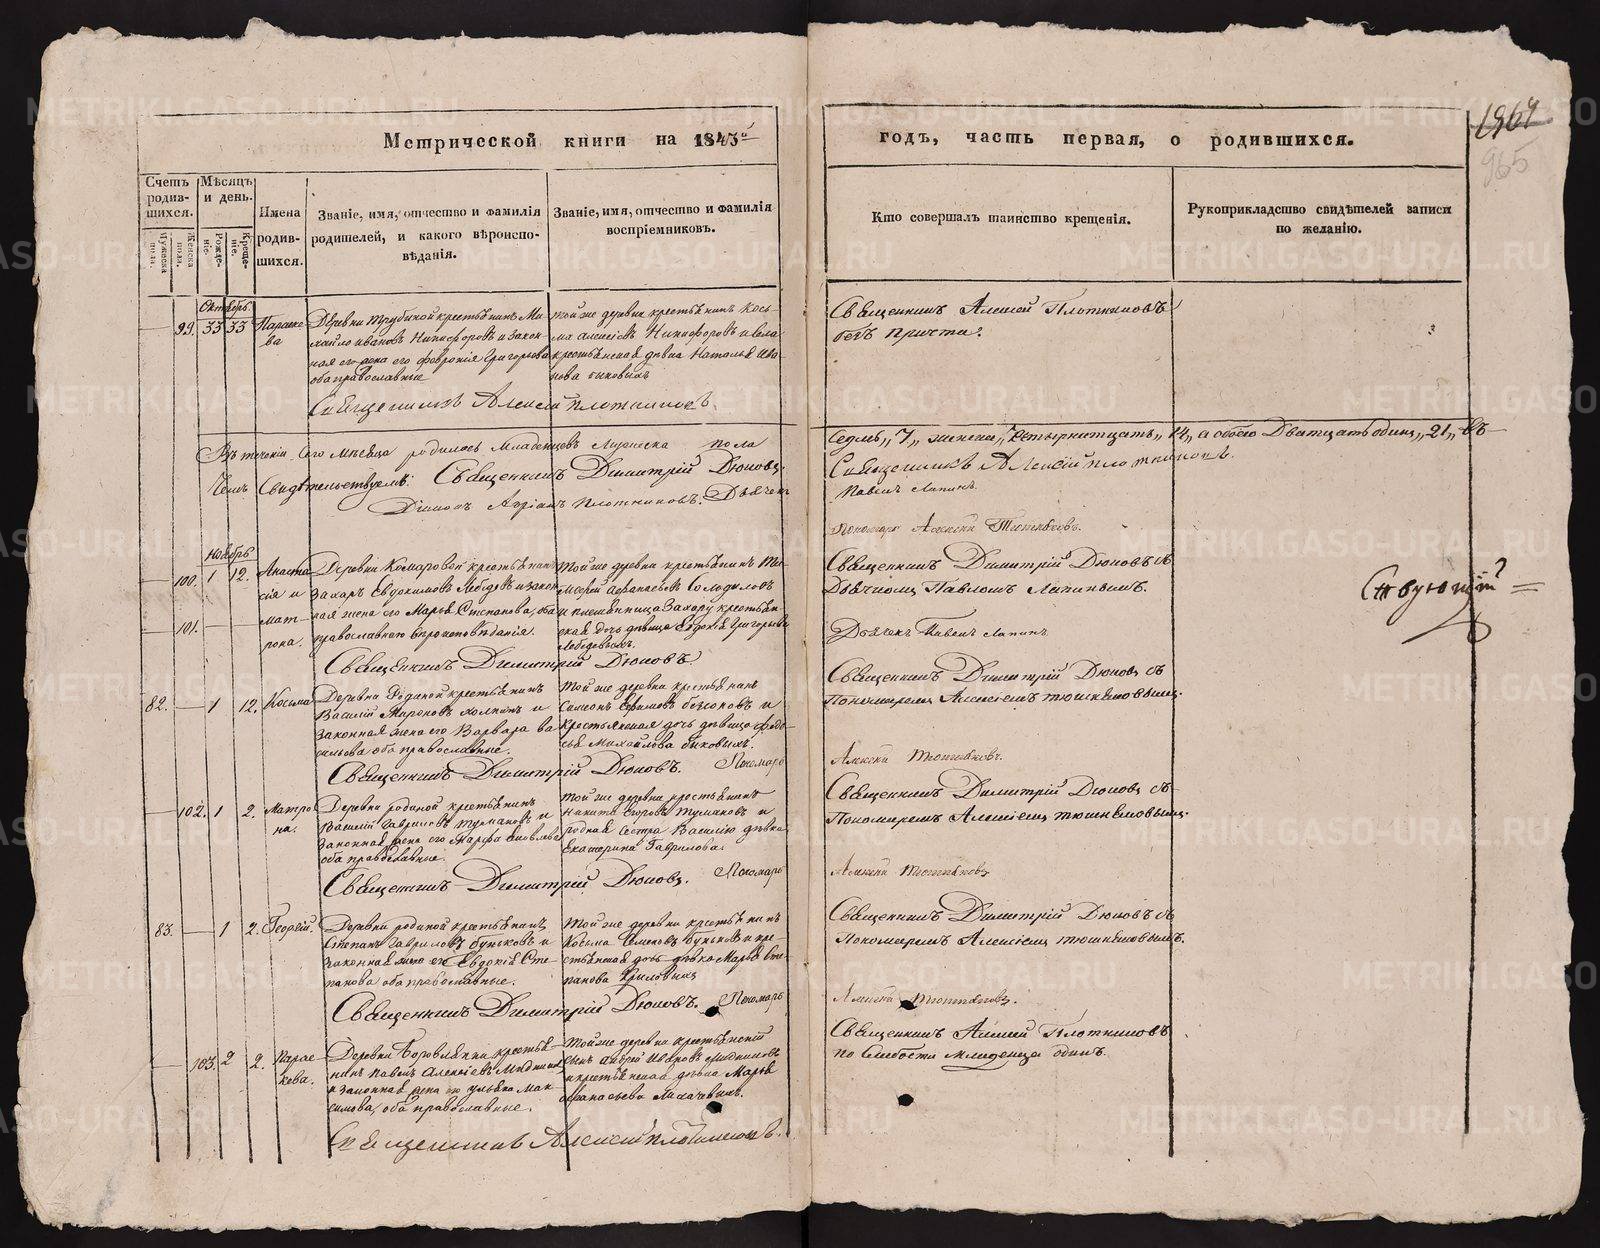 Метрической книги на 1843й
годъ, часть первая, о родившихся.
1964
965
Счетъ родив-
шихся.
Мѣсяцъ
и день.
Имена
родив-
шихся.
Званіе, имя, отчество и фамилія
родителей, и какого вѣроиспо-
вѣданія.
Званіе, имя, отчество и фамилія
воспріемниковъ.
Кто совершалъ таинство крещенія.
Рукоприкладство свидѣтелей записи
по желанію.
Мужеска
пола.
Женска
пола.
Рожде-
ніе.
Креще-
ніе.
Октябрь
99. 33 33 Параске-
ва
Деревни Трубиной крестьянинъ Ми-
хайло Ивановъ Никифоровъ и закон-
ная его жена его Февронія Григорьева
оба православные
той же деревни крестьянинъ Кось-
ма Алексѣевъ Никифоровъ и
крестьянская дѣвка Наталья Ива-
нова Быковыхъ
Священникъ Алексѣй Плотниковъ
безъ причта.
Священникъ Алексѣй Плотниковъ.
Въ теченіи сего мѣсяца родилось младенцевъ мужеска пола
седмь „7„ женска „четырнатцать„ 14„ а обоего Дватцать одинъ „21„ въ
чемъ свидѣтельствуемъ: Священникъ Димитрій Дюковъ.
Священникъ Алексій Плотниковъ.
Діаконъ Андріанъ Плотниковъ. Дьячекъ
Павелъ Лапинъ.
Пономарь Алексѣй
Ноябрь
100. 1 12. Анаста-
сія и
101. Мат-
рона.
Деревни Комаровой крестьянинъ
Захаръ Евдокимовъ Лебедевъ и закон-
ная жена его Марья Степанова, оба
православнаго вѣроисповѣданія.
Той же деревни крестьянинъ Ти-
мофей Афанасьевъ Солодиловъ
и племянница Захару крестьян-
ская дочь дѣвица Евдокія Григорьева
Лебедевыхъ
Священникъ Димитрій Дюковъ съ
Дьячкомъ Павломъ Лапинымъ.
Дьячекъ Павелъ Лапинъ
Священникъ Димитрій Дюковъ.
82. 1 12. Косьма
Деревни Родиной крестьянинъ
Василій Мироновъ и
законная жена его Варвара Ва-
сильева оба православные.
Той же деревни крестьянинъ
Семенъ Ефимовъ и
крестьянская дочь дѣвица Федо-
сья Михайлова Быковыхъ.
Священникъ Димитрій Дюковъ съ
Пономаремъ Алексѣемъ
Священникъ Димитрій Дюковъ. Пономарь
Алексѣй
102. 1 2. Матро-
на.
Деревни Родиной крестьянинъ
Василій Гавриловъ Тумановъ и
законная жена его Марфа Яковлева
оба православные.
Той же деревни крестьянинъ
Никита Егоровъ Тумановъ и
родная сестра Василію дѣвка
Екатерина Гаврилова.
Священникъ Димитрій Дюковъ съ
Пономаремъ Алексѣемъ
Священникъ Димитрій Дюковъ. Пономарь
Алексѣй
83. 1 2. Георгій.
Деревни Родиной крестьянинъ
Степанъ Гавриловъ Буньковъ и
законная жена его Евдокія Сте-
панова оба православные.
Той же деревни крестьянинъ
Косьма Семеновъ Буньковъ и кре-
стьянская дочь дѣвка Марья Сте-
панова
Священникъ Димитрій Дюковъ съ
Пономаремъ Алексѣемъ
Священникъ Димитрій Дюковъ. Пономарь
Алексѣй
103. 2 2. Параске-
кева.
Деревни Боровлянки крестья-
нинъ Павелъ Алексѣевъ
и законная жена его Ульяна Мак-
симова, оба православные.
Той же деревни крестьянскій
сынъ Андрей Ивановъ
и крестьянская дѣвка Марья
Афанасьева
Священникъ Алексѣй Плотниковъ
по слабости младенца одинъ.
Священникъ Алексѣй Плотниковъ.
METRIKI.GASO-URAL.RU